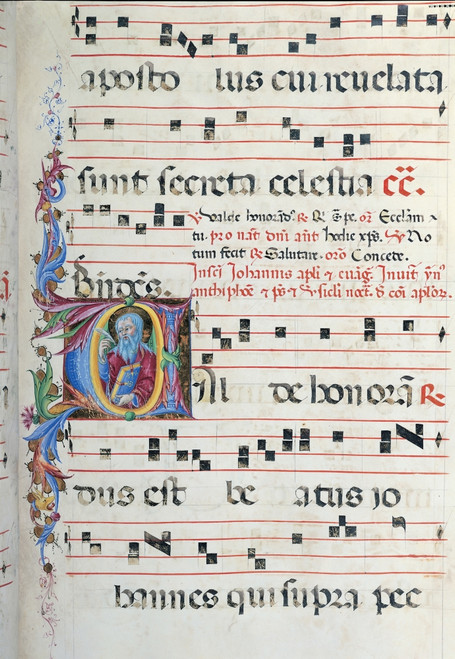 aposto lus cui reuelata
sunt secreta celestia ec̄.
℣ Valde honorād'. ℞ Ecclam
tu. pro nat̄ dn̄i an̄t hodie xp̄s. ℣ No
tum fecit ℞ Salutare. or̄o Concete.
In sc̄i Johannis apl̄i & euāg. Inuit yn̄
anthiphōe & ps̄ & v̄siculi noct. cōi aplor.
VAl de honorā ℞
dus est be atus io
hannes qui supra pec